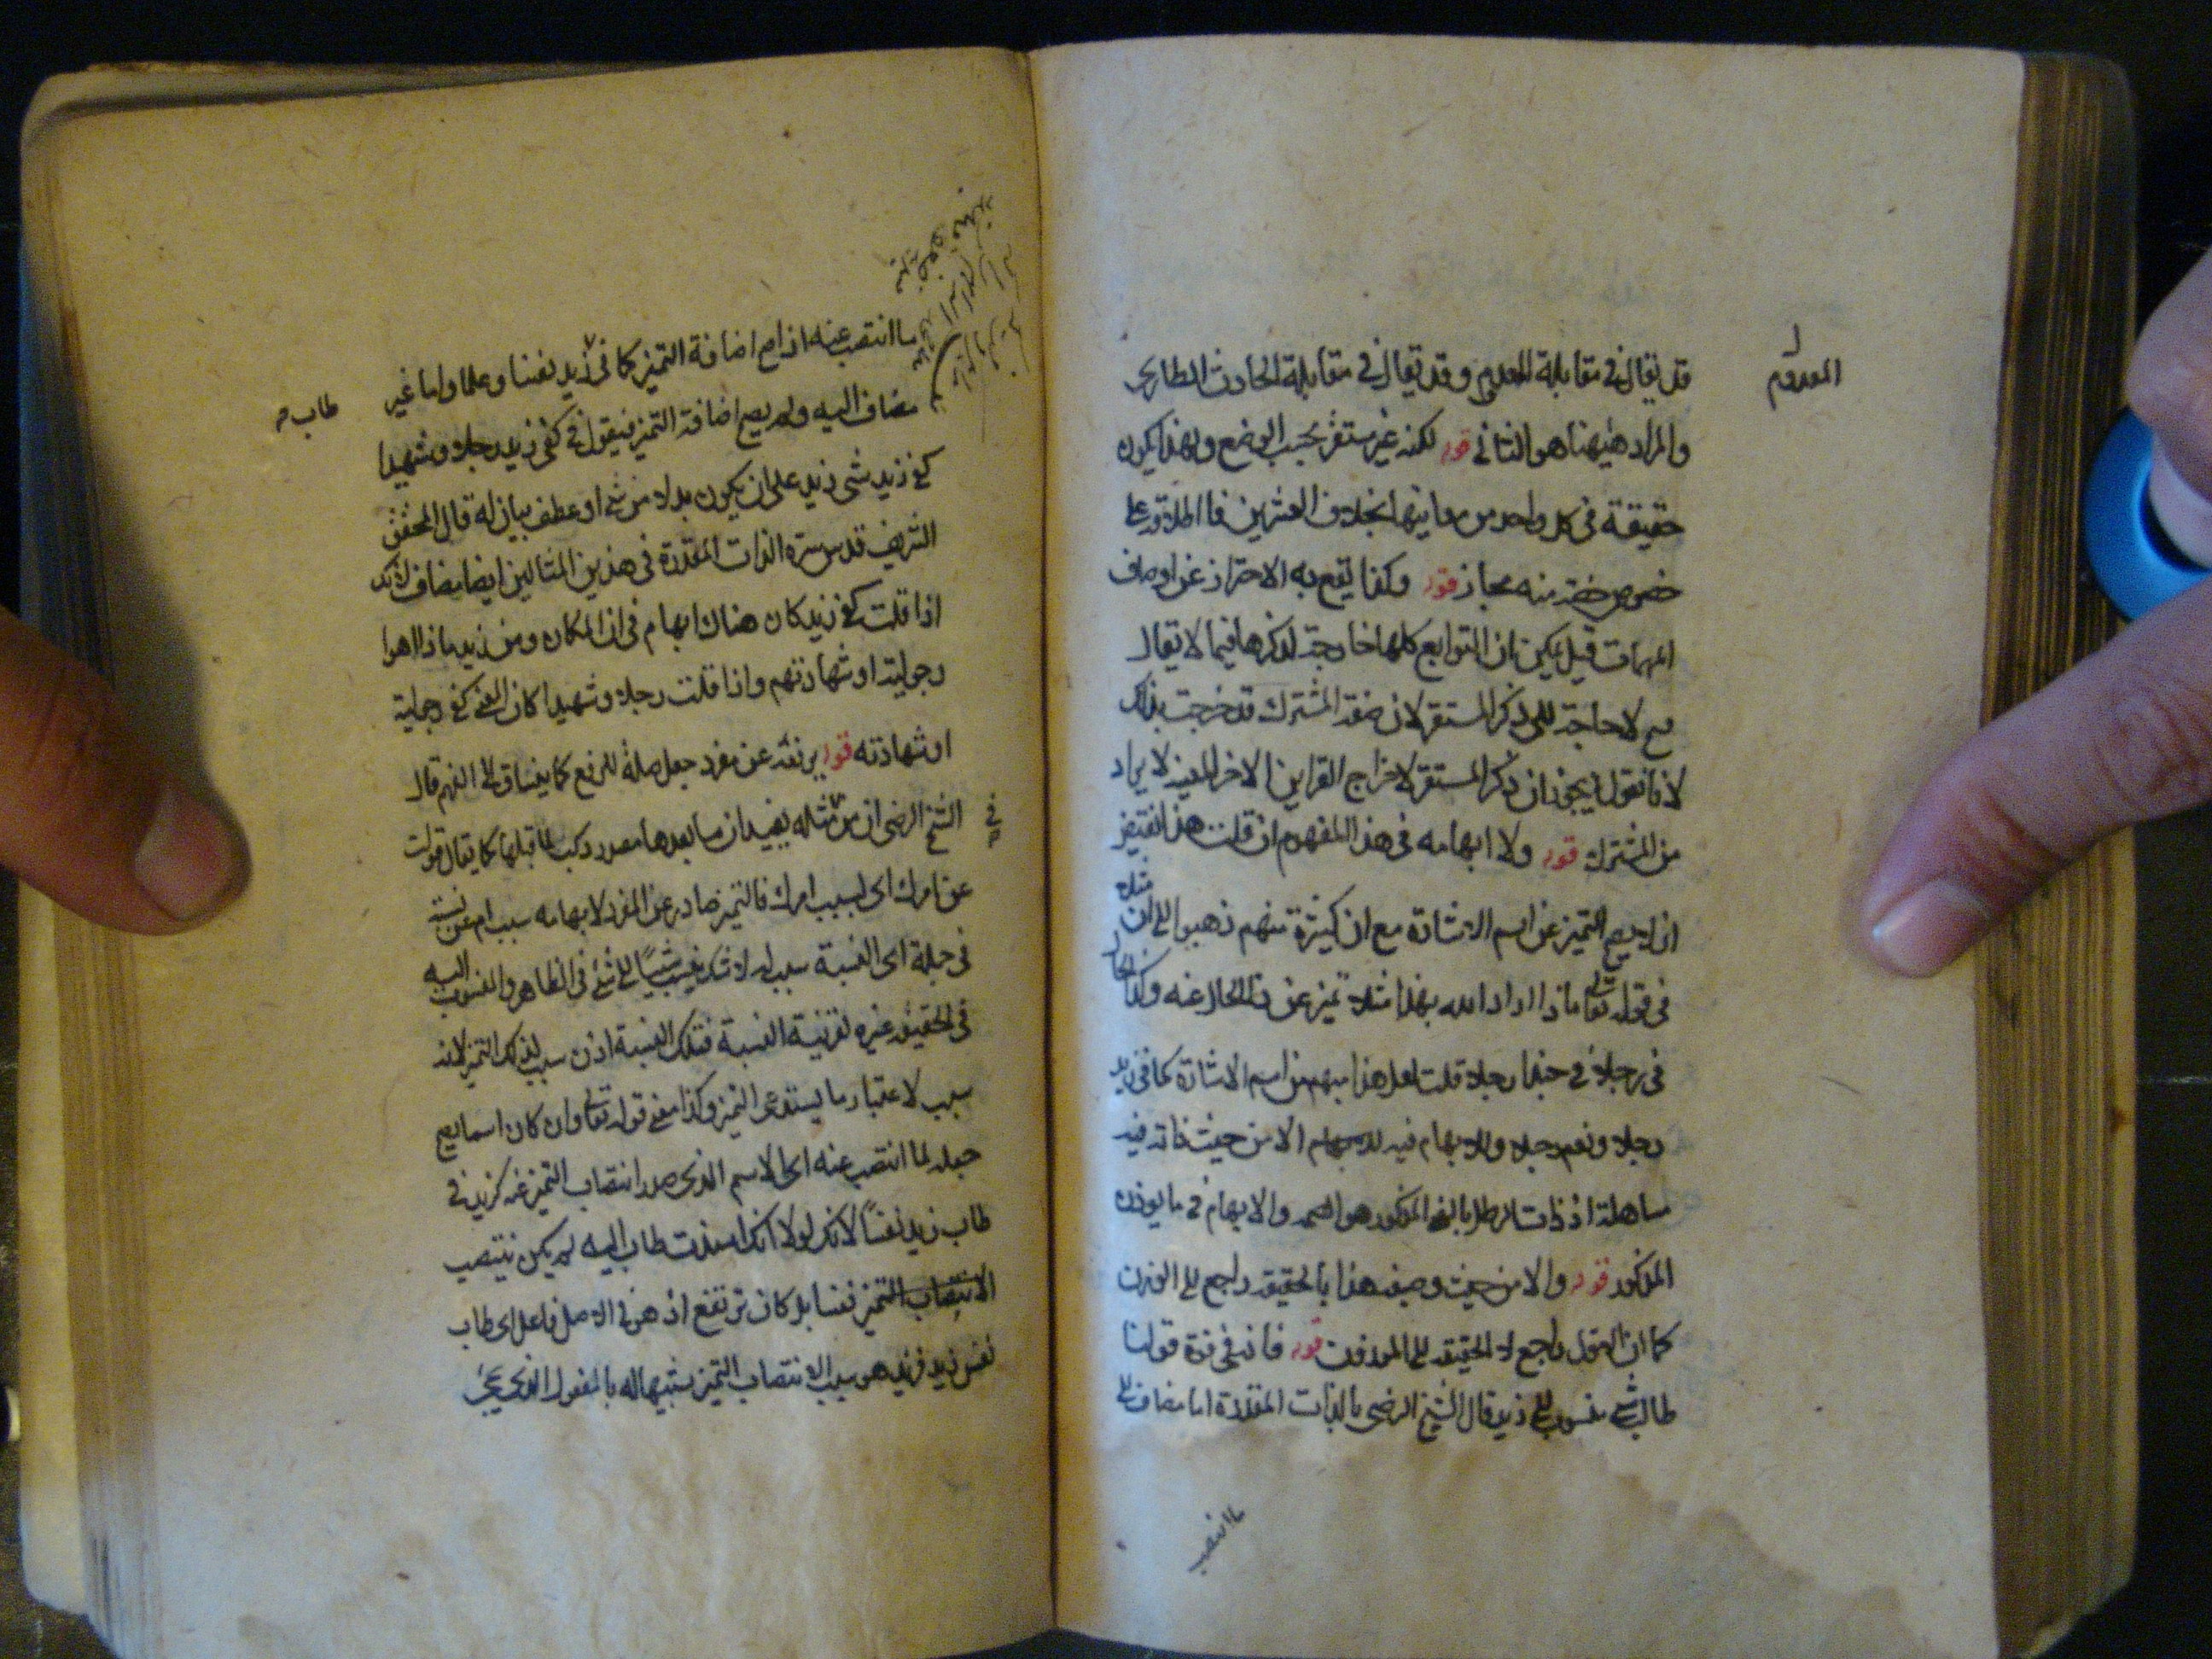 المعدوم
قد يقال في مقابلة المعدوم وقد يقال في مقابلة الحادث الطاري
والمراد هيهنا هو الثاني قوله لكنه غير مستقر بحسب الوضع ولهذا يكون
حقيقة في كل واحد من معانيها بخلاف العشرين فاطلاقه على
خصوص حصته منه مجاز قوله وكذا يقع به الاحتراز عن اوصاف
المبهمات قيل يمكن بان التوابع كلها خارجة لذكرها فيما لا يقال
مع لا حاجة الى ذكر المستقر لان صفة المشترك قد خرجت بذلك
لانا نقول يجوز ان ذكر المستقر لاخراج القراين الاخر المعينة لا يراد
من المشترك قوله ولا ابهامه في هذا المفهوم ان قلت هذا يقتضي
ان لا يصح التميز عن اسم الاشارة مع ان كثيرة منهم ذهبوا الى ان مثلا
في قوله تعالى ماذا اراد الله بهذا مثلا تميز عن ذا لا حال عنه وكذا الحال
في رجلا في حبذا رجلا قلت لعل هذا مبهم من اسم الاشارة كما في زيد
رجلا ونعم رجلا ولا ابهام فيه الا من حيث ذاته فيه
مساهلة اذ ذات الرطل بالمعنى المذكور هو الصمد والابهام في ما يوزن
المذكور قوله والا من حيث وصفه هذا بالحقيقة راجع الى الوزن
كما ان الاول راجع الحقيقة الى الموزون قوله فانه في قوة قولنا
طاب شيء منسوب الى زيد قال الشيخ الرضى بالذات المقدرة اما مضاف الى
ما انتصب
ما انتصب عنه اذا صح اضافة التميز كما في زيد نفسا وعلما واما غير
طاب صح
مضاف اليه ولم يصح اضافة التميز فيقول في كفى زيد رجلا وشهيدا
كفى زيد شيء زيد على ان يكون بدلا من شيء او عطف بيان له قال المحقق
الشريف قدس سره الذات المقدرة في هذين المثالين ايضا مضاف لانك
اذا قلت كفى زيد كان هناك ابهام في ان المكان ومن زيد ماذا اهوا
رجوليته او شهادتهم واذا قلت رجلا وشهيدا كان المعنى كفى رجوليته
او شهادته قوله يرفعه عن مفرد جعل صلة للرفع كما ينساق الى الفهم قال
الشيخ الرضى ان عن في مثله يفيد ان ما بعدها مصدر وكسب لما قبلها كما يقال قولت
عن امرك اى بسبب امرك فالتميز صادر عن المفرد لابهامه سبب ام عن نسبة
في جملة اى النسبة سبب له لانك نسبت شيئا الى شيء في الظاهر والمنسوب اليه
في الحقيقة غيره لقرينة النسبة فتلك النسبة اذن سبب لذلك التميز لانه
سبب لاعتبار ما يستدعى التميز وكذا معنى قوله تعالى وان كان اسما يصح
جعله لما انتصب عنه اى الاسم الذى صدر انتصاب التميز عنه كزيد في
طاب زيد نفسا لانك لولا انك اسندت طاب اليه لم يكن ينتصب
الانتصاب التميز نفسا بل كان يرتفع اذ هو في الاصل فاعل اى طاب
نفس زيد فزيد هو سبب الانتصاب التميز تشبيها له بالمفعول الذى يجئ